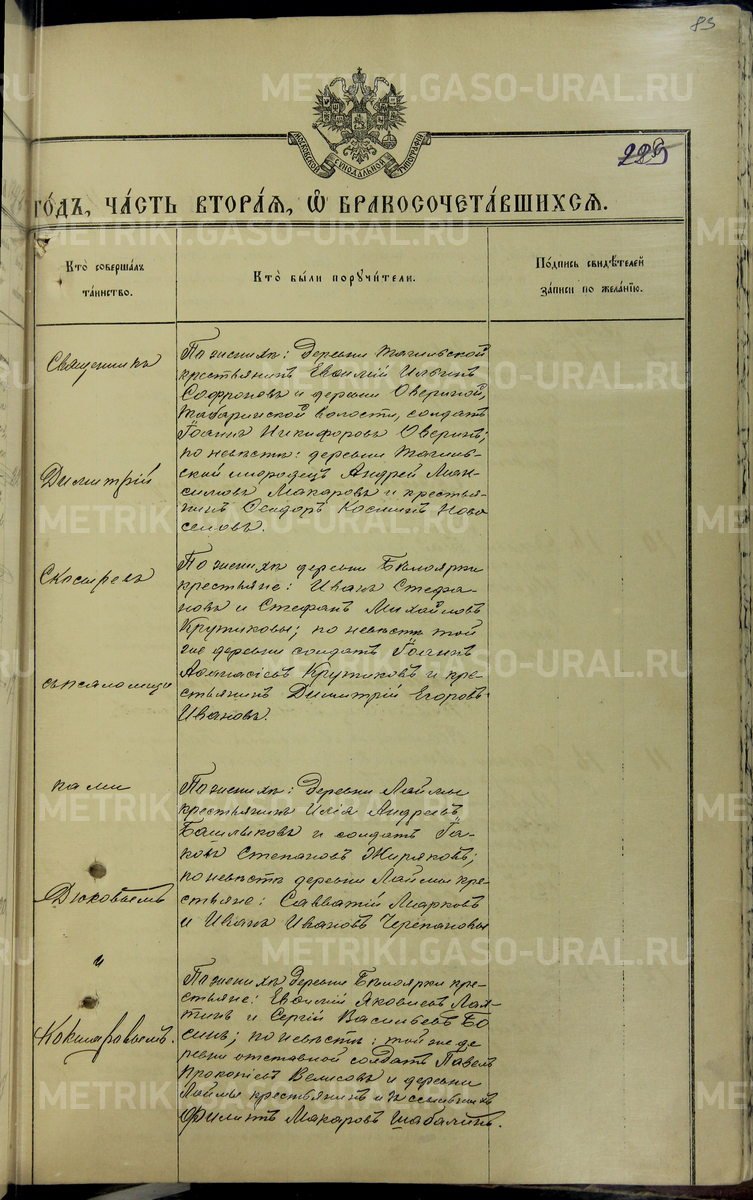 83
METRIKI.GASO-URAL.RU
МОСКОВСКОЙ СѴНОДАЛЬНОЙ ТИПОГРАФІИ
229
ГО́ДЪ, ЧА́СТЬ ВТОРА́Я, Ѡ҆ БРАКОСОЧЕТА́ВШИХСЯ.
Кто̀ соверша́лъ
та́инство.
Кто̀ бы́ли поручи́тели.
По́дпись свидѣ́телей
за́писи по жела́нїю.
Священникъ
Димитрій
съ псаломщи
ками
и
По женихѣ: Деревни Тагильской
крестьянинъ Евѳимій Ильинъ
Софроновъ и деревни Овериной,
Табаринской волости, солдатъ
Іоаннъ Никифоровъ Оверинъ;
по невѣстѣ: деревни Тагиль-
ской инородецъ Андрей Мак-
симовъ Макаровъ и крестья-
нинъ Ѳеодоръ Космин Ново
селовъ.
По женихѣ деревни Бѣлоярки
крестьяне: Иванъ Стефа-
новъ и Стефанъ Михайловъ
Крутиковы; по невѣстѣ той
же деревни солдатъ Іоаннъ
Аѳанасіевъ Крутиковъ и кре-
стьянинъ Димитрій Егоровъ
Ивановъ.
По женихѣ: Деревни Лаймы
крестьянинъ Илія Андреевъ
Башлыковъ и солдатъ Іа-
ковъ Степановъ Жиряковъ;
по невѣстѣ деревни Лаймы кре-
стьяне: Савватій Марковъ
и Иванъ Ивановъ Черепановы
По женихѣ деревни Бѣлоярки кре-
стьяне: Евѳимій Яковлевъ Лап-
тинъ и Сергій Васильевъ Бо
синъ; по невѣстѣ: той же де
ревни отставной солдатъ Павелъ
Прокопіевъ Велисовъ и деревни
Лаймы крестьянинъ изъ ссыльныхъ
Филипъ Макаровъ Шабалинъ.